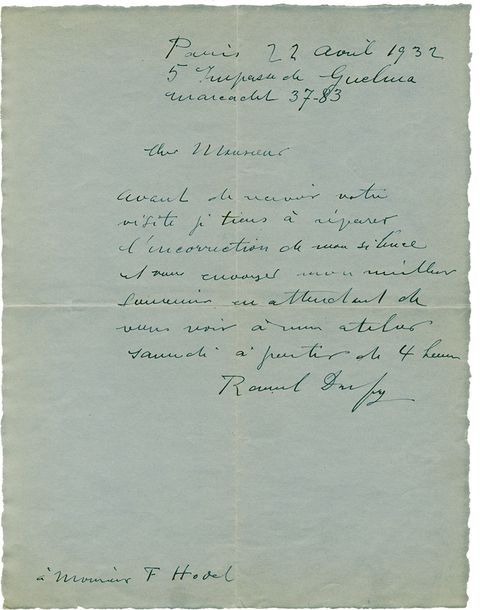 Paris 22 avril 1932
5 Impasse de Guelma
Marcadet 37-83
Cher Monsieur
avant de recevoir votre
visite je tiens à réparer
l'incorrection de mon silence
et vous envoyer mon meilleur
souvenir en attendant de
vous voir à mon atelier
samedi à partir de 4 heures
Raoul Dufy
à Monsieur F Hodel